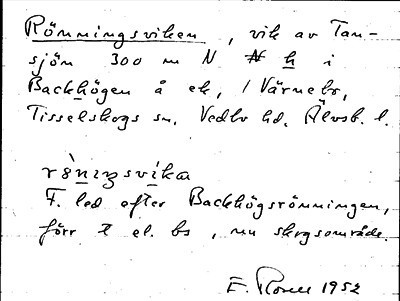 Rönningsviken, vik av Tan-
sjön 300 m N h i
Backhögen å ek, i Värnebo,
Tisselskogs sn, Vedbo hd. Älvsb. l.
F. led efter Backhögsrönningen,
förr t el. bs, nu skogsområde.
1952